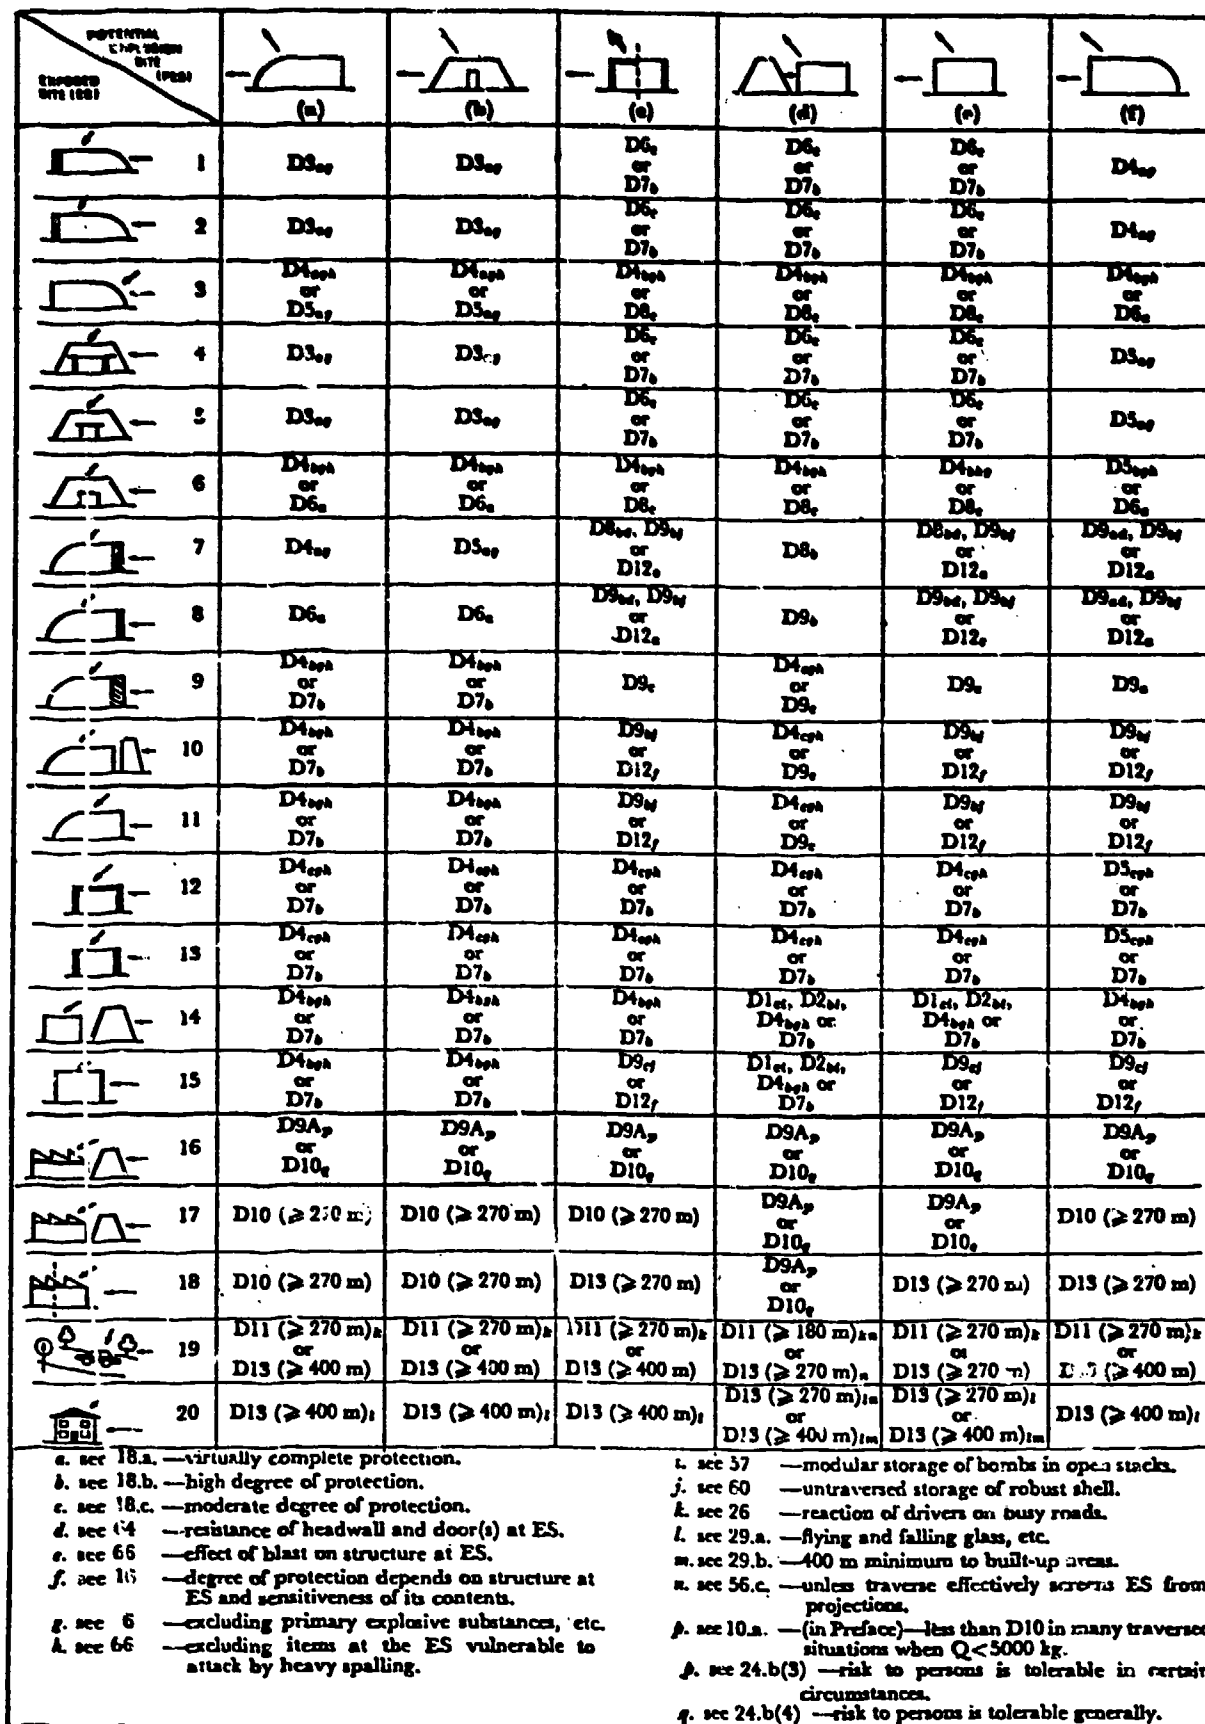 POTENTIAL EXPLOSION SITE (PES)
EXPOSED SITE (ES)
(a) (b) (c) (d) (e) (f)
1 D3ag D3ag D6c or D7b D6c or D7b D6c or D7b D4ag
2 D3ag D3ag D6c or D7b D6c or D7b D6c or D7b D4ag
3 D4agh or D5ag D4agh or D5ag D4bgh or D8c D4bgh or D8c D4bgh or D8c D4bgh or D6a
4 D3ag D3ag D6c or D7b D6c or D7b D6c or D7b D5ag
5 D3ag D3ag D6c or D7b D6c or D7b D6c or D7b D5ag
6 D4bgh or D6a D4bgh or D6a D4bgh or D8c D4bgh or D8c D4bhg or D8c D5bgh or D6a
7 D4ag D5ag D8bd, D9bf or D12a D8b D8bd, D9bf or D12a D9ad, D9bf or D12a
8 D6a D6a D9bd, D9bf or D12a D9b D9bd, D9bf or D12c D9ad, D9bf or D12a
9 D4bgh or D7b D4bgh or D7b D9c D4cgh or D9c D9c D9a
10 D4bgh or D7b D4bgh or D7b D9bf or D12f D4cgh or D9c D9bf or D12f D9bf or D12f
11 D4bgh or D7b D4bgh or D7b D9bf or D12f D4cgh or D9c D9bf or D12f D9bf or D12f
12 D4cgh or D7b D4cgh or D7b D4cgh or D7b D4cgh or D7b D4cgh or D7b D5cgh or D7b
13 D4cgh or D7b D4cgh or D7b D4cgh or D7b D4cgh or D7b D4cgh or D7b D5cgh or D7b
14 D4bgh or D7b D4bgh or D7b D4bgh or D7b D1ci, D2bi, D4bgh or D7b D1ci, D2bi, D4bgh or D7b D4bgh or D7b
15 D4bgh or D7b D4bgh or D7b D9cf or D12f D1ci, D2bi, D4bgh or D7b D9cf or D12f D9cf or D12f
16 D9Ap or D10q D9Ap or D10q D9Ap or D10q D9Ap or D10q D9Ap or D10q D9Ap or D10q
17 D10 (⩾ 270 m) D10 (⩾ 270 m) D10 (⩾ 270 m) D9Ap or D10q D9Ap or D10q D10 (⩾ 270 m)
18 D10 (⩾ 270 m) D10 (⩾ 270 m) D13 (⩾ 270 m) D9Ap or D10q D13 (⩾ 270 m) D13 (⩾ 270 m)
19 D11 (⩾ 270 m)k or D13 (⩾ 400 m) D11 (⩾ 270 m)k or D13 (⩾ 400 m) D11 (⩾ 270 m)k or D13 (⩾ 400 m) D11 (⩾ 180 m)kn or D13 (⩾ 270 m)n D11 (⩾ 270 m)k or D13 (⩾ 270 m) D11 (⩾ 270 m)k or (⩾ 400 m)
20 D13 (⩾ 400 m)l D13 (⩾ 400 m)l D13 (⩾ 400 m)l D13 (⩾ 270 m)ln or D13 (⩾ 400 m)lm D13 (⩾ 270 m)l or D13 (⩾ 400 m)lm D13 (⩾ 400 m)l
a. see 18.a. —virtually complete protection.
b. see 18.b. —high degree of protection.
c. see 18.c. —moderate degree of protection.
d. see 64 —resistance of headwall and door(s) at ES.
e. see 66 —effect of blast on structure at ES.
f. see 16 —degree of protection depends on structure at
ES and sensitiveness of its contents.
g. see 6 —excluding primary explosive substances, etc.
h. see 66 —excluding items at the ES vulnerable to
attack by heavy spalling.
i. see 57 —modular storage of bombs in open stacks.
j. see 60 —untraversed storage of robust shell.
k. see 26 —reaction of drivers on busy roads.
l. see 29.a. —flying and falling glass, etc.
m. see 29.b. —400 m minimum to built-up areas.
n. see 56.c. —unless traverse effectively screens ES from
projections.
p. see 10.a. —(in Preface)—less than D10 in many traversed
situations when Q<5000 kg.
p. see 24.b(3) —risk to persons is tolerable in certain
circumstances.
q. see 24.b(4) —risk to persons is tolerable generally.